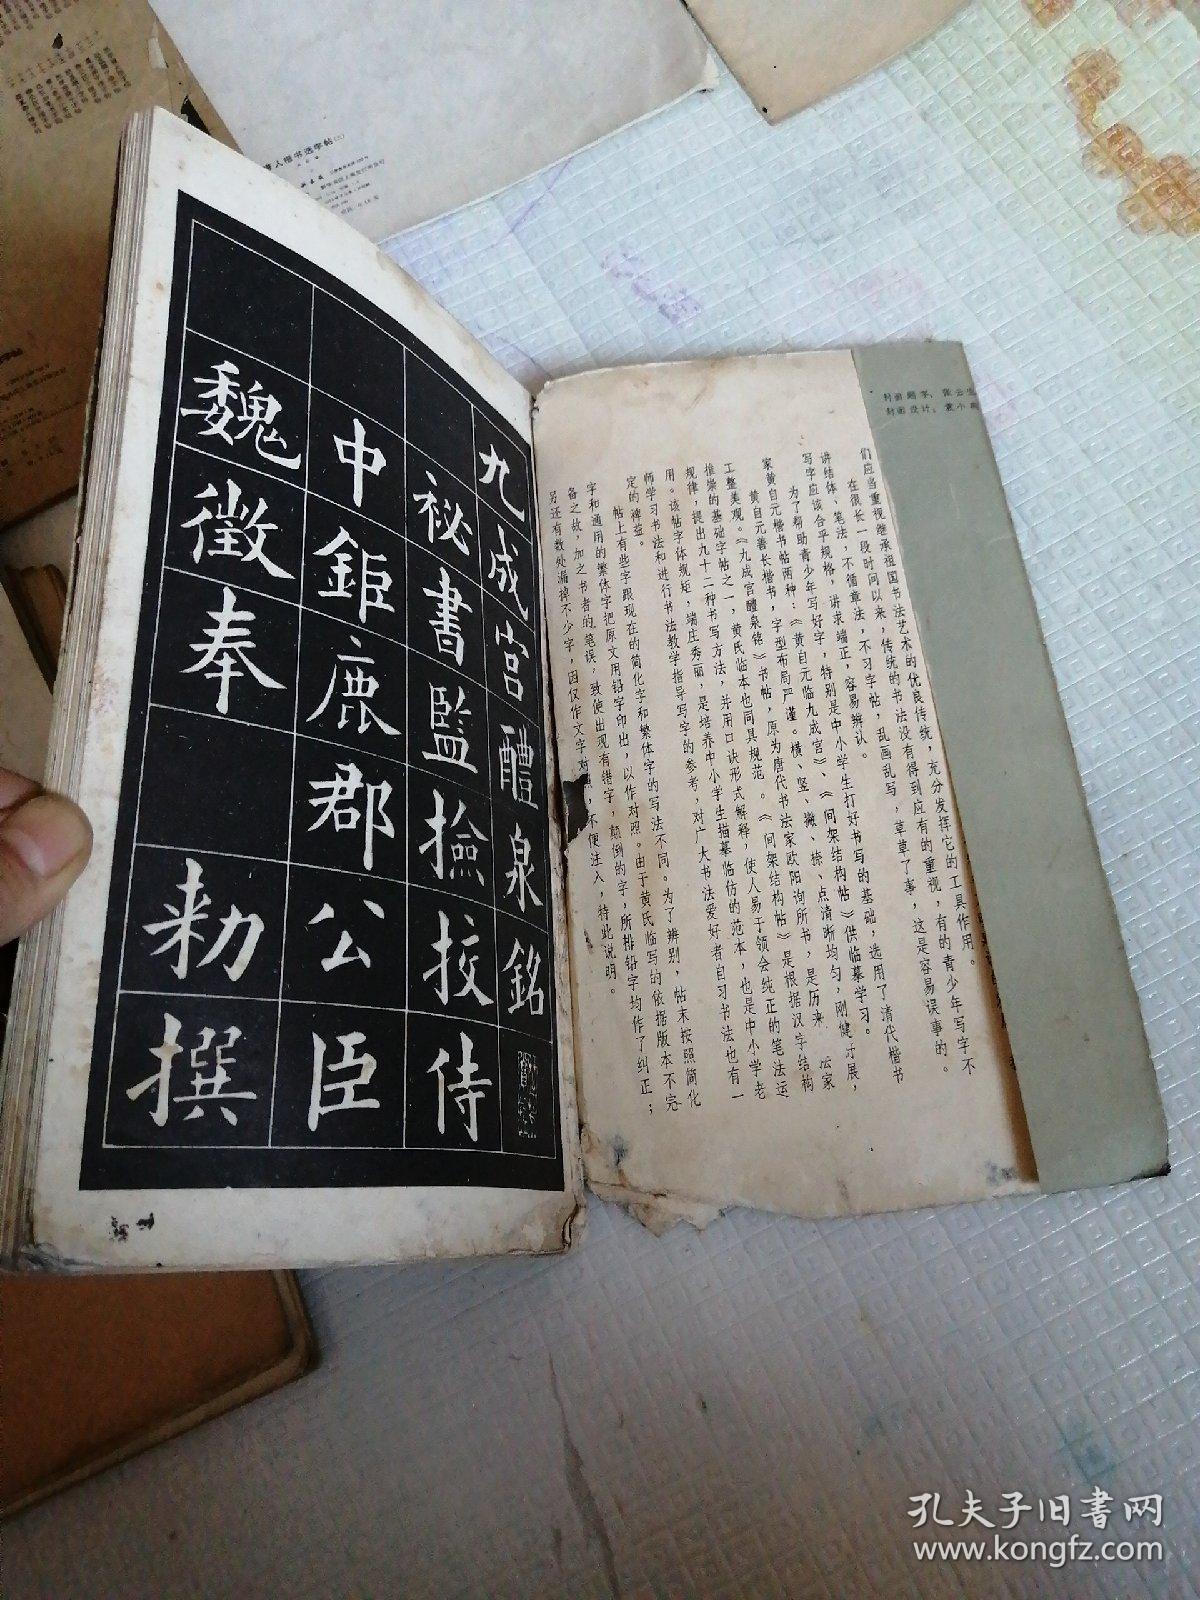 人楷书选字帖
封面题字：张云
封面设计：袁小
们应当重视继承祖国书法艺术的优良传统，充分发挥它的工具作用。
在很长一段时间以来，传统的书法没有得到应有的重视，有的青少年写字不
讲结体、笔法，不循章法，不习字帖，乱画乱写，草草了事，这是容易误事的。
写字应该合乎规格，讲求端正，容易辨认。
为了帮助青少年写好字，特别是中小学生打好书写的基础，选用了清代楷书
家黄自元楷书帖两种：《黄自元临九成宫》、《间架结构帖》供临摹学习。
黄自元善长楷书，字型布局严谨。横、竖、撇、捺、点清晰均匀，刚健 展，
工整美观。《九成宫醴泉铭》书帖，原为唐代书法家欧阳询所书，是历来 家
推崇的基础字帖之一，黄氏临本也同具规范。《间架结构帖》是根据汉字结构
规律，提出九十二种书写方法，并用口诀形式解释，使人易于领会纯正的笔法运
用。该帖字体规矩，端庄秀丽，是培养中小学生描摹临仿的范本，也是中小学老
师学习书法和进行书法教学指导写字的参考，对广大书法爱好者自习书法也有一
定的裨益。
帖上有些字跟现在的简化字和繁体字的写法不同。为了辨别，帖末按照简化
字和通用的繁体字把原文用铅字印出，以作对照。由于黄氏临写的依据版本不完
备之故，加之书者的笔误，致使出现有错字，颠倒的字，所排铅字均作了纠正；
另还有数处漏掉不少字，因仅作文字对照，不便注入，特此说明。
九成宫醴泉銘
祕書監撿挍侍
中鉅鹿郡公臣
魏徵奉 勑撰
孔夫子旧书网
www.kongfz.com